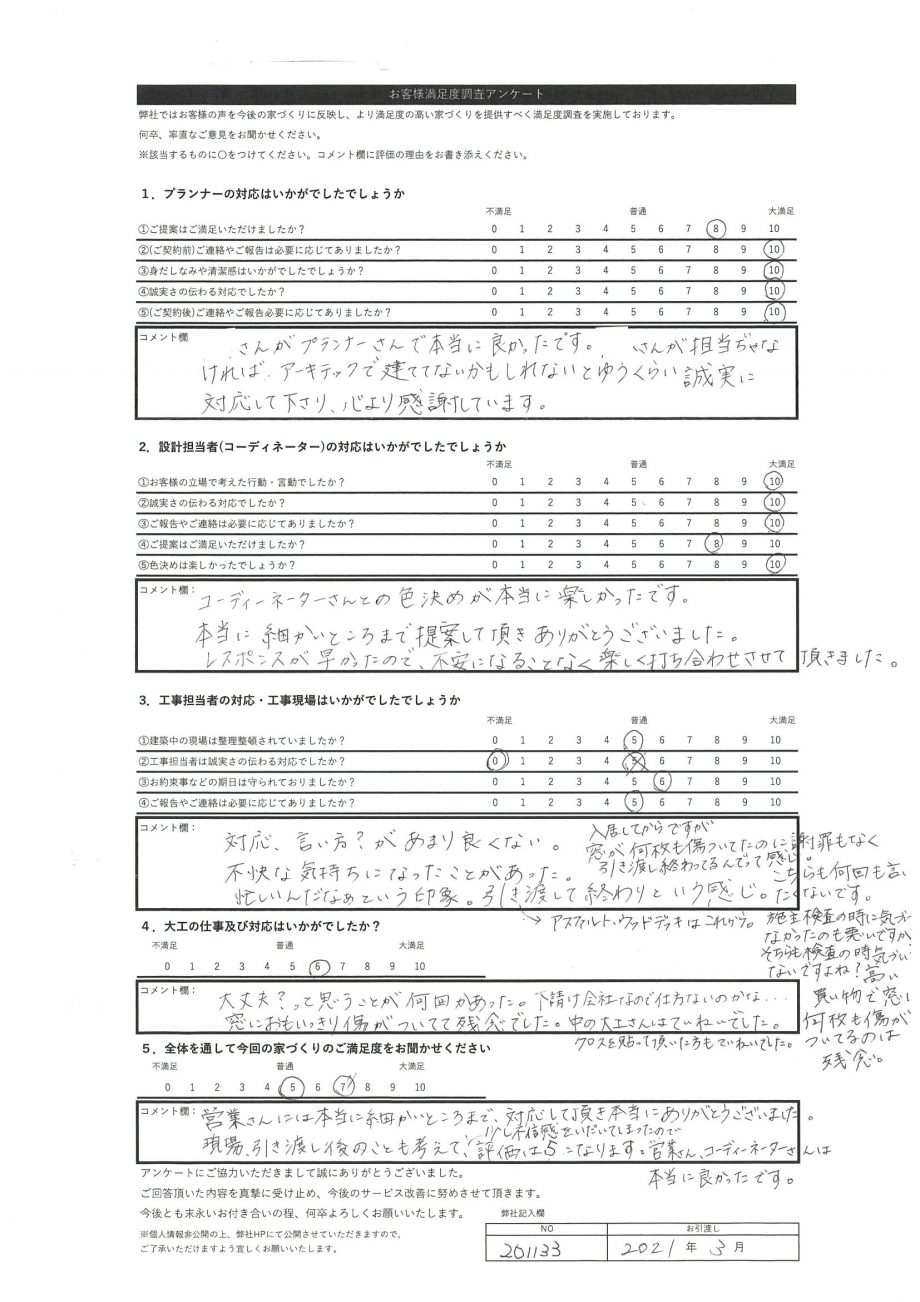 お客様満足度調査アンケート
弊社ではお客様の声を今後の家づくりに反映し、より満足度の高い家づくりを提供すべく満足度調査を実施しております。
何卒、率直なご意見をお聞かせください。
※該当するものに〇をつけてください。コメント欄に評価の理由をお書き添えください。
1．プランナーの対応はいかがでしたでしょうか
不満足 普通 大満足
①ご提案はご満足いただけましたか？ 0 1 2 3 4 5 6 7 8 9 10
②(ご契約前)ご連絡やご報告は必要に応じてありましたか？ 0 1 2 3 4 5 6 7 8 9 10
③身だしなみや清潔感はいかがでしたでしょうか？ 0 1 2 3 4 5 6 7 8 9 10
④誠実さの伝わる対応でしたか？ 0 1 2 3 4 5 6 7 8 9 10
⑤(ご契約後)ご連絡やご報告必要に応じてありましたか？ 0 1 2 3 4 5 6 7 8 9 10
コメント欄
さんがプランナーさんで本当に良かったです。 さんが担当ぢゃな
ければ、アーキテックで建ててないかもしれないとゆうくらい誠実に
対応して下さり、心より感謝しています。
2．設計担当者(コーディネーター)の対応はいかがでしたでしょうか
不満足 普通 大満足
①お客様の立場で考えた行動・言動でしたか？ 0 1 2 3 4 5 6 7 8 9 10
②誠実さの伝わる対応でしたか？ 0 1 2 3 4 5 6 7 8 9 10
③ご報告やご連絡は必要に応じてありましたか？ 0 1 2 3 4 5 6 7 8 9 10
④ご提案はご満足いただけましたか？ 0 1 2 3 4 5 6 7 8 9 10
⑤色決めは楽しかったでしょうか？ 0 1 2 3 4 5 6 7 8 9 10
コメント欄：
コーディーネーターさんとの色決めが本当に楽しかったです。
本当に細かいところまで提案して頂きありがとうございました。
レスポンスが早かったので、不安になることなく楽しく打ち合わせさせて頂きました。
3．工事担当者の対応・工事現場はいかがでしたでしょうか
不満足 普通 大満足
①建築中の現場は整理整頓されていましたか？ 0 1 2 3 4 5 6 7 8 9 10
②工事担当者は誠実さの伝わる対応でしたか？ 0 1 2 3 4 5 6 7 8 9 10
③お約束事などの期日は守られておりましたか？ 0 1 2 3 4 5 6 7 8 9 10
④ご報告やご連絡は必要に応じてありましたか？ 0 1 2 3 4 5 6 7 8 9 10
コメント欄：
対応、言い方？があまり良くない。
不快な気持ちになったことがあった。
忙しいんだなぁという印象。引き渡して終わりという感じ。
→アスファルト・ウッドデッキはこれから。
入居してからですが
窓が何枚も傷ついてたのに謝罪もなく
引き渡し終わってるんでって感じ。
こちらも何回も言い
たくないです。
施主検査の時に気づか
なかったのも悪いですが、
そちらも検査の時気づいて
ないですよね？高い
買い物で窓に
何枚も傷が
ついてるのは
残念。
4．大工の仕事及び対応はいかがでしたか？
不満足 普通 大満足
0 1 2 3 4 5 6 7 8 9 10
コメント欄：
大丈夫？って思うことが何回かあった。下請け会社なので仕方ないのかな...
窓におもいっきり傷がついてて残念でした。中の大工さんはていねいでした。
クロスを貼って頂いた方もていねいでした。
5．全体を通して今回の家づくりのご満足度をお聞かせください
不満足 普通 大満足
0 1 2 3 4 5 6 7 8 9 10
コメント欄：
営業さんには本当に細かいところまで、対応して頂き本当にありがとうございました。
少し不信感をいだいてしまったので
現場、引き渡し後のことも考えて、評価は5になります。営業さん、コーディーネーターさんは
本当に良かったです。
アンケートにご協力いただきまして誠にありがとうございました。
ご回答頂いた内容を真摯に受け止め、今後のサービス改善に努めさせて頂きます。
今後とも末永いお付き合いの程、何卒よろしくお願いいたします。
※個人情報非公開の上、弊社HPにて公開させていただきますので、
ご了承いただけますよう宜しくお願いいたします。
弊社記入欄
NO お引渡し
201133 2021年3月